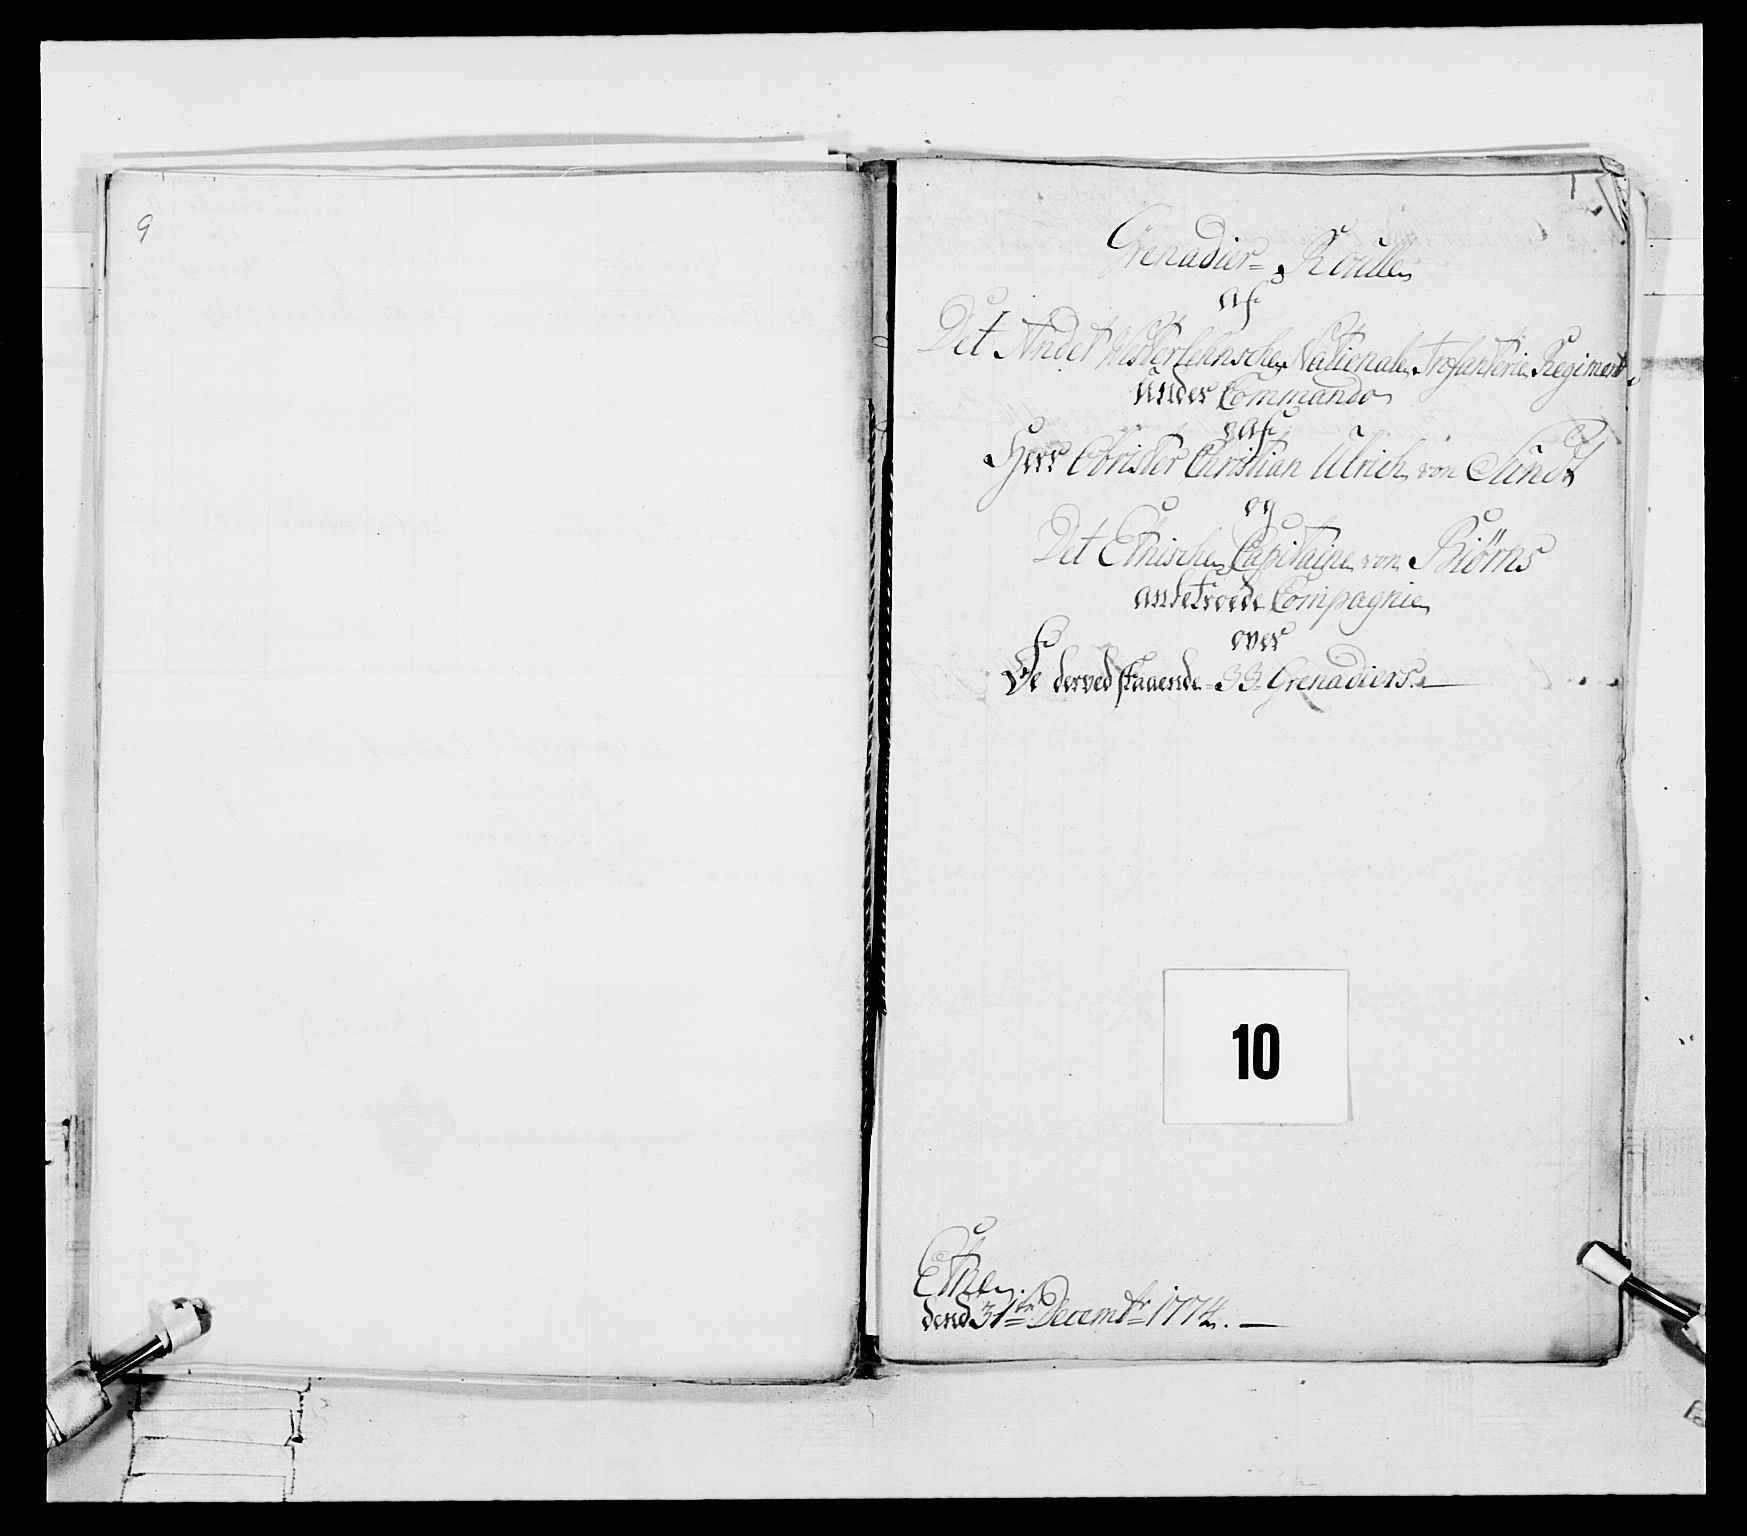 9
1
Grenadier= Roulle
af
Det Andet Westerlehnsche Nationale Infanterie Regiment
under Commando
af
Herr Obrister Christian Ulrich von Sundt
og
Det Etnische Capitaine von Biørns
anbetroede Compagnie
over
De derved staaende 33 Grenadiers.
10
Etne
dend 31te Decembr 1774.